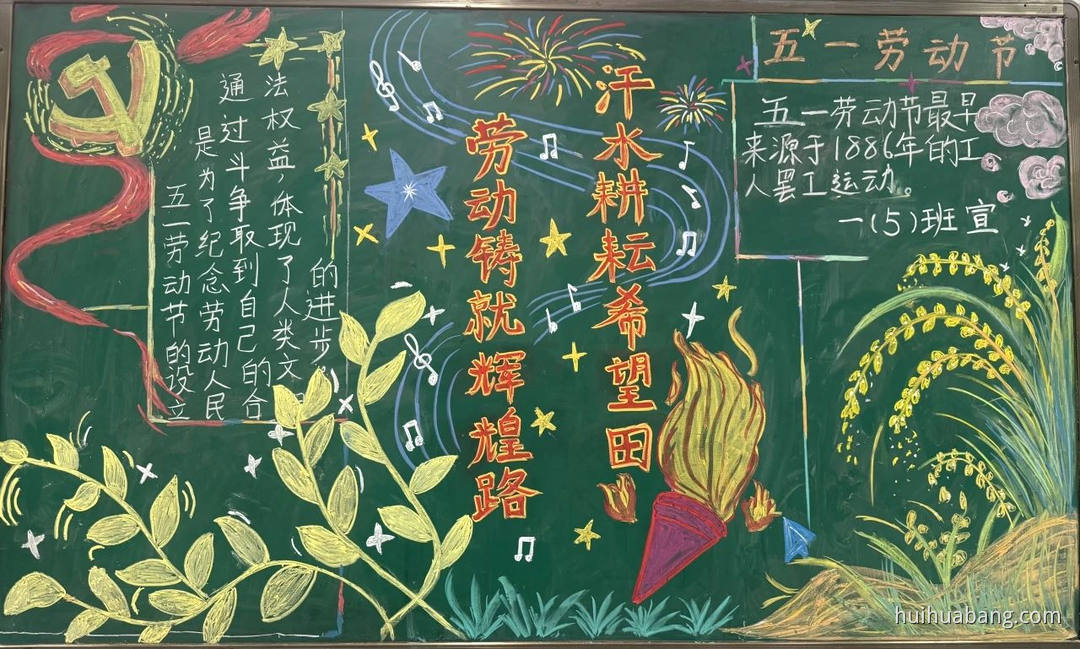 五一劳动节的设立
是为了纪念劳动人民
通过斗争取到自己的合
法权益,体现了人类文
的进步。
汗水耕耘希望田
劳动铸就辉煌路
五一劳动节
五一劳动节最早
来源于1886年的工
人罢工运动。
一(5)班 宣
huihuabang.com